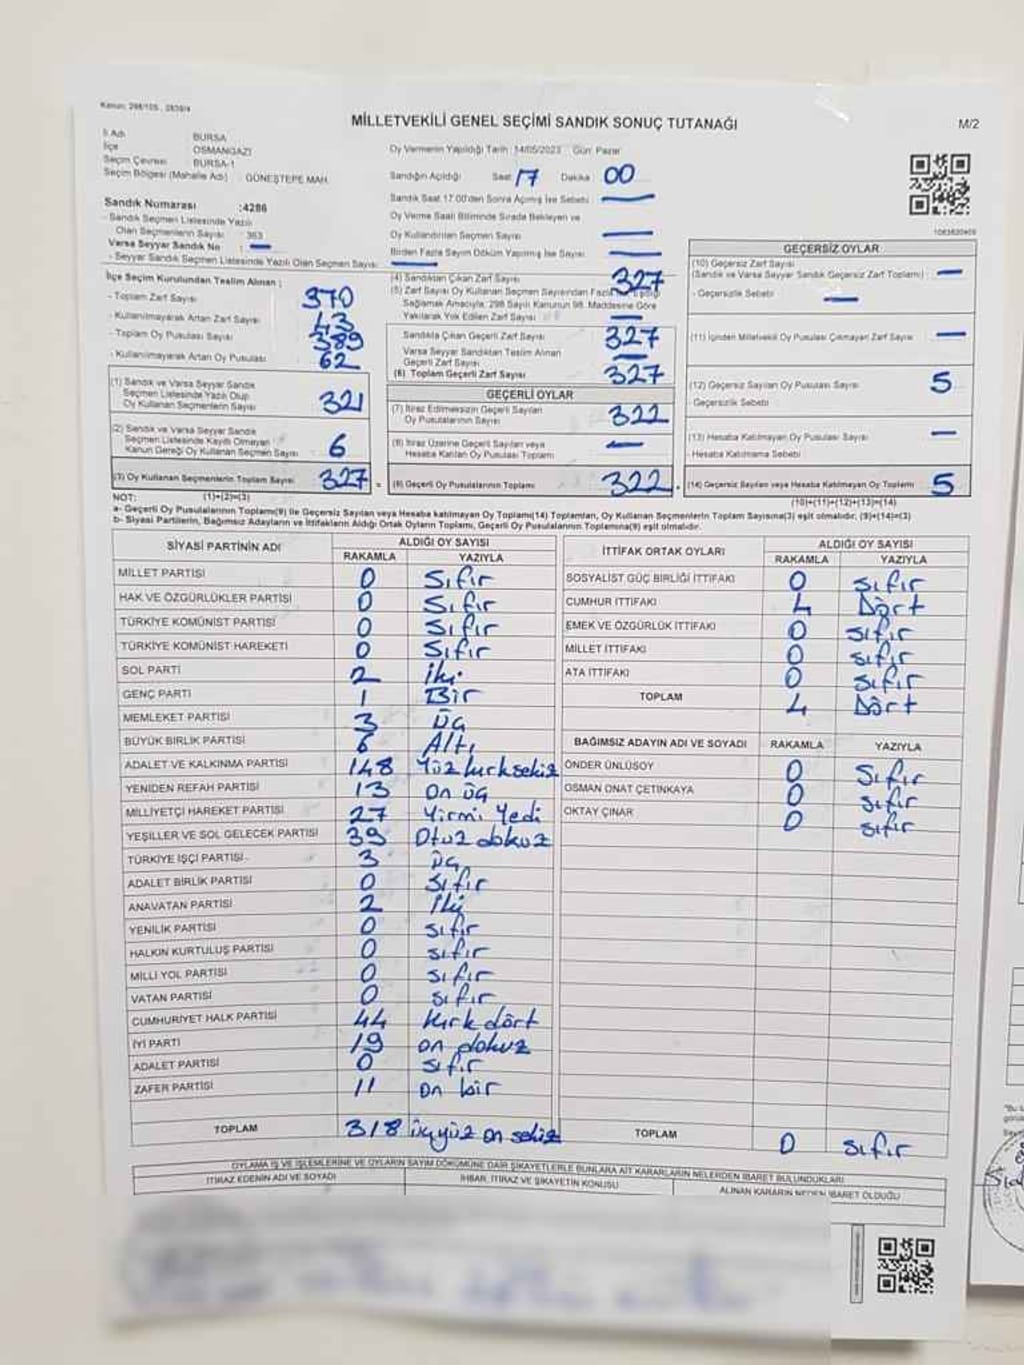 Kanun: 298/105, 2839/4
MİLLETVEKİLİ GENEL SEÇİMİ SANDIK SONUÇ TUTANAĞI
M/2
İl Adı BURSA
İlçe OSMANGAZİ
Seçim Çevresi BURSA-1
Seçim Bölgesi (Mahalle Adı) : GÜNEŞTEPE MAH.
Sandık Numarası :4286
- Sandık Seçmen Listesinde Yazılı
Olan Seçmenlerin Sayısı : 363
Varsa Seyyar Sandık No : —
- Seyyar Sandık Seçmen Listesinde Yazılı Olan Seçmen Sayısı: —
Oy Vermenin Yapıldığı Tarih :14/05/2023 Gün: Pazar
Sandığın Açıldığı Saat 17 Dakika 00
Sandık Saat 17.00'den Sonra Açılmış İse Sebebi —
Oy Verme Saati Bitiminde Sırada Bekleyen ve
Oy Kullandırılan Seçmen Sayısı —
Birden Fazla Sayım Döküm Yapılmış İse Sayısı —
İlçe Seçim Kurulundan Teslim Alınan ;
- Toplam Zarf Sayısı 370
- Kullanılmayarak Artan Zarf Sayısı 43
- Toplam Oy Pusulası Sayısı 389
- Kullanılmayarak Artan Oy Pusulası 62
(1) Sandık ve Varsa Seyyar Sandık
Seçmen Listesinde Yazılı Olup
Oy Kullanan Seçmenlerin Sayısı 321
(2) Sandık ve Varsa Seyyar Sandık
Seçmen Listesinde Kayıtlı Olmayan
Kanun Gereği Oy Kullanan Seçmen Sayısı 6
(3) Oy Kullanan Seçmenlerin Toplam Sayısı 327
(4) Sandıktan Çıkan Zarf Sayısı 327
(5) Zarf Sayısı Oy Kullanan Seçmen Sayısından Fazla İse, Eşitliği
Sağlamak Amacıyla, 298 Sayılı Kanunun 98. Maddesine Göre
Yakılarak Yok Edilen Zarf Sayısı —
Sandıkta Çıkan Geçerli Zarf Sayısı 327
Varsa Seyyar Sandıktan Teslim Alınan
Geçerli Zarf Sayısı —
(6) Toplam Geçerli Zarf Sayısı 327
GEÇERLİ OYLAR
(7) İtiraz Edilmeksizin Geçerli Sayılan
Oy Pusulalarının Sayısı 322
(8) İtiraz Üzerine Geçerli Sayılan veya
Hesaba Katılan Oy Pusulası Toplamı —
(9) Geçerli Oy Pusulalarının Toplamı 322
1063820409
GEÇERSİZ OYLAR
(10) Geçersiz Zarf Sayısı
(Sandık ve Varsa Seyyar Sandık Geçersiz Zarf Toplamı) —
- Geçersizlik Sebebi —
(11) İçinden Milletvekili Oy Pusulası Çıkmayan Zarf Sayısı —
(12) Geçersiz Sayılan Oy Pusulası Sayısı 5
- Geçersizlik Sebebi
(13) Hesaba Katılmayan Oy Pusulası Sayısı —
- Hesaba Katılmama Sebebi
(14) Geçersiz Sayılan veya Hesaba Katılmayan Oy Toplamı 5
NOT: (1)+(2)=(3) (10)+(11)+(12)+(13)=(14)
a- Geçerli Oy Pusulalarının Toplamı(9) ile Geçersiz Sayılan veya Hesaba Katılmayan Oy Toplamı(14) Toplamları, Oy Kullanan Seçmenlerin Toplam Sayısına(3) eşit olmalıdır, (9)+(14)=(3)
b- Siyasi Partilerin, Bağımsız Adayların ve İttifakların Aldığı Ortak Oyların Toplamı, Geçerli Oy Pusulalarının Toplamına(9) eşit olmalıdır.
SİYASİ PARTİNİN ADI ALDIĞI OY SAYISI
RAKAMLA YAZIYLA
MİLLET PARTİSİ 0 Sıfır
HAK VE ÖZGÜRLÜKLER PARTİSİ 0 Sıfır
TÜRKİYE KOMÜNİST PARTİSİ 0 Sıfır
TÜRKİYE KOMÜNİST HAREKETİ 0 Sıfır
SOL PARTİ 2 İki
GENÇ PARTİ 1 Bir
MEMLEKET PARTİSİ 3 Üç
BÜYÜK BİRLİK PARTİSİ 6 Altı
ADALET VE KALKINMA PARTİSİ 148 Yüz kırk sekiz
YENİDEN REFAH PARTİSİ 13 On üç
MİLLİYETÇİ HAREKET PARTİSİ 27 Yirmi Yedi
YEŞİLLER VE SOL GELECEK PARTİSİ 39 Otuz dokuz
TÜRKİYE İŞÇİ PARTİSİ 3 Üç
ADALET BİRLİK PARTİSİ 0 Sıfır
ANAVATAN PARTİSİ 2 İki
YENİLİK PARTİSİ 0 sıfır
HALKIN KURTULUŞ PARTİSİ 0 sıfır
MİLLİ YOL PARTİSİ 0 sıfır
VATAN PARTİSİ 0 sıfır
CUMHURİYET HALK PARTİSİ 44 kırk dört
İYİ PARTİ 19 on dokuz
ADALET PARTİSİ 0 sıfır
ZAFER PARTİSİ 11 on bir
TOPLAM 318 üçyüz on sekiz
İTTİFAK ORTAK OYLARI ALDIĞI OY SAYISI
RAKAMLA YAZIYLA
SOSYALİST GÜÇ BİRLİĞİ İTTİFAKI 0 sıfır
CUMHUR İTTİFAKI 4 Dört
EMEK VE ÖZGÜRLÜK İTTİFAKI 0 sıfır
MİLLET İTTİFAKI 0 sıfır
ATA İTTİFAKI 0 sıfır
TOPLAM 4 Dört
BAĞIMSIZ ADAYIN ADI VE SOYADI RAKAMLA YAZIYLA
ÖNDER ÜNLÜSOY 0 Sıfır
OSMAN ONAT ÇETİNKAYA 0 sıfır
OKTAY ÇINAR 0 sıfır
TOPLAM 0 sıfır
OYLAMA İŞ VE İŞLEMLERİNE VE OYLARIN SAYIM DÖKÜMÜNE DAİR ŞİKAYETLERLE BUNLARA AİT KARARLARIN NELERDEN İBARET BULUNDUKLARI
İTİRAZ EDENİN ADI VE SOYADI İHBAR, İTİRAZ VE ŞİKAYETİN KONUSU ALINAN KARARIN NEDEN İBARET OLDUĞU